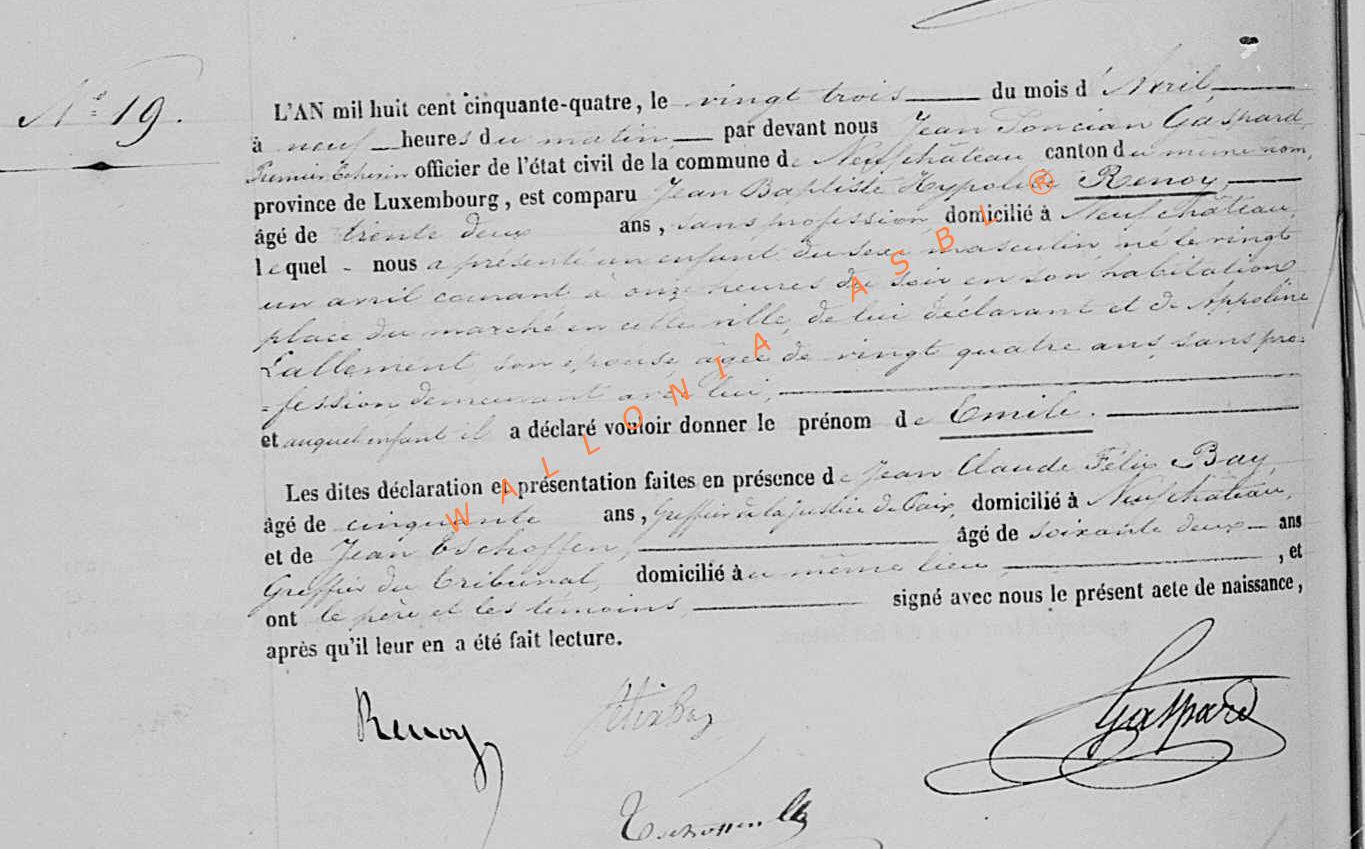 N° 19.
L'AN mil huit cent cinquante-quatre, le vingt trois du mois d' Avril,
à neuf heures du matin par devant nous Jean Poncian Gaspard
Premier Echevin officier de l'état civil de la commune de Neufchâteau canton du même nom,
province de Luxembourg, est comparu Jean Baptiste Hypolite Renoy,
âgé de trente deux ans, sans profession, domicilié à Neufchâteau,
lequel nous a présenté un enfant du sexe masculin né le vingt
un avril courant à onze heures du soir en son habitation
place du marché en cette ville, de lui déclarant et de Appoline
Lallement, son épouse âgée de vingt quatre ans, sans pro=
=fession demeurant avec lui,
et auquel enfant il a déclaré vouloir donner le prénom de Emile.
Les dites déclaration et présentation faites en présence de Jean Claude Félix Bay,
âgé de cinquante ans, Greffier de la justice de Paix, domicilié à Neufchâteau,
et de Jean Eschoffen, âgé de soixante deux ans
Greffier du tribunal, domicilié au même lieu, , et
ont le père et les témoins, signé avec nous le présent acte de naissance,
après qu'il leur en a été fait lecture.
Renoy Gaspard
WALLONIA ASBL ®